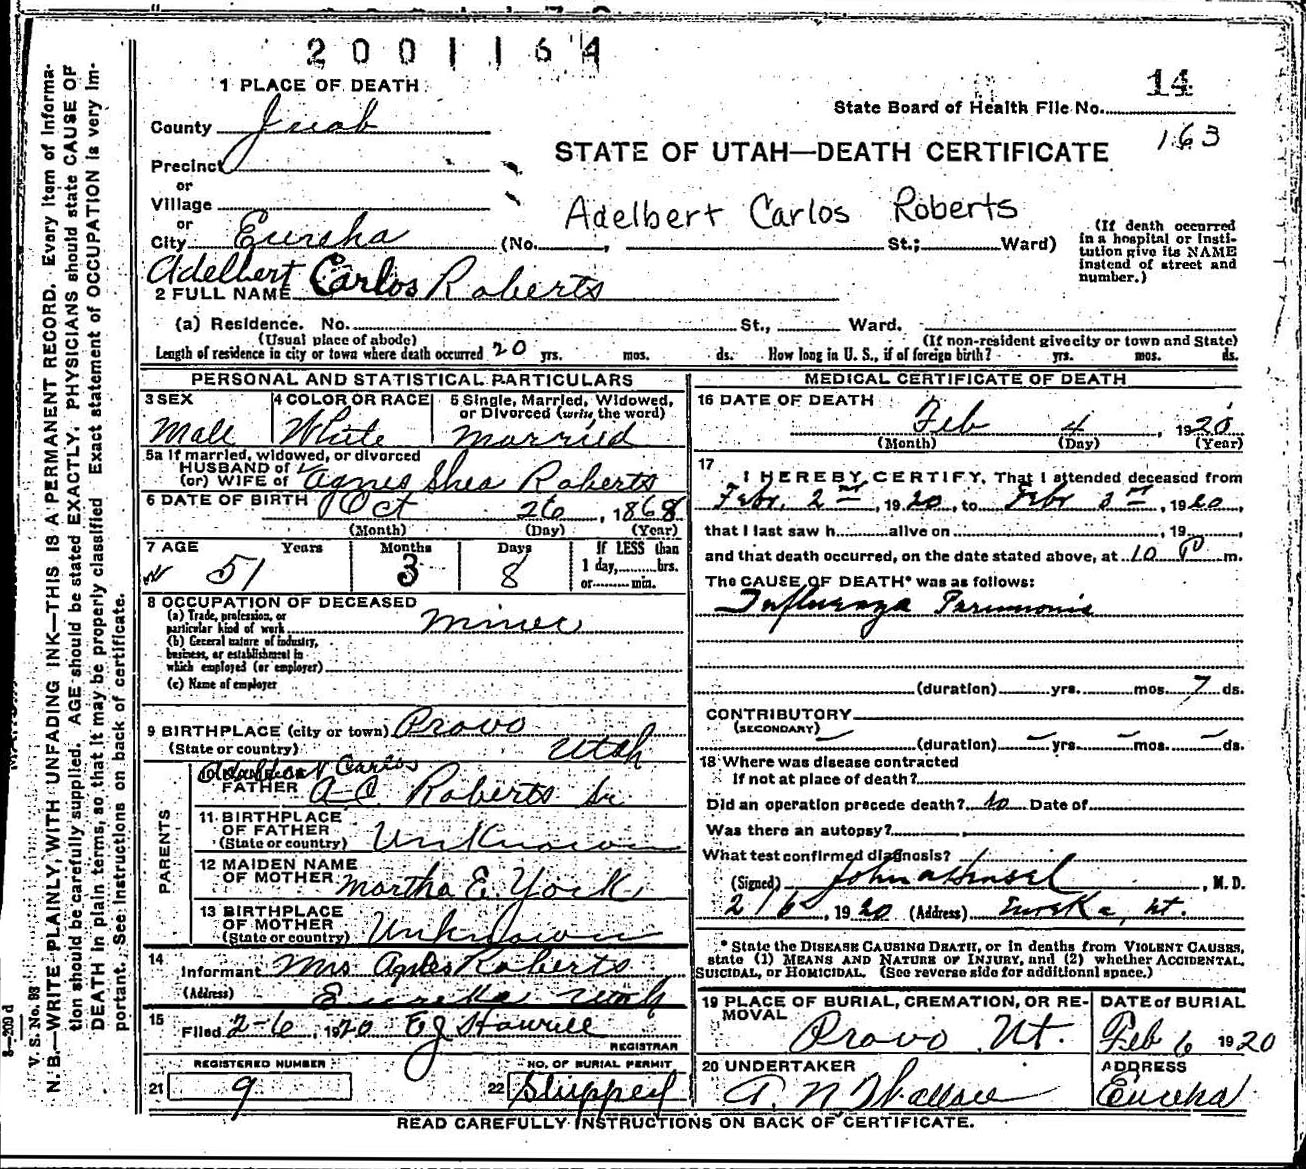 2001164
1 PLACE OF DEATH
14
State Board of Health File No.
163
County Juab
STATE OF UTAH—DEATH CERTIFICATE
Precinct
or
Village
Adelbert Carlos Roberts
or
City Eureka (No. , St.; Ward)
(If death occurred in a hospital or institution give its NAME instead of street and number.)
Adelbert Carlos Roberts
2 FULL NAME
(a) Residence. No. St., Ward.
(Usual place of abode) (If non-resident give city or town and State)
Length of residence in city or town where death occurred 20 yrs. mos. ds. How long in U. S., if of foreign birth? yrs. mos. ds.
PERSONAL AND STATISTICAL PARTICULARS
3 SEX 4 COLOR OR RACE 5 Single, Married, Widowed, or Divorced (write the word)
Male White Married
5a If married, widowed, or divorced
HUSBAND of
(or) WIFE of Agnes Shea Roberts
6 DATE OF BIRTH Oct 26, 1868
(Month) (Day) (Year)
7 AGE Years Months Days If LESS than
51 3 8 1 day, hrs.
or min.
8 OCCUPATION OF DECEASED
(a) Trade, profession, or
particular kind of work Miner
(b) General nature of industry,
business, or establishment in
which employed (or employer)
(c) Name of employer
9 BIRTHPLACE (city or town) Provo
(State or country) Utah
PARENTS
Carlos
FATHER A-C Roberts Sr
11 BIRTHPLACE
OF FATHER
(State or country) Unknown
12 MAIDEN NAME
OF MOTHER Martha E. York
13 BIRTHPLACE
OF MOTHER
(State or country) Unknown
14
Informant Mrs Agnes Roberts
(Address) Eureka Utah
15
Filed 2-6, 1920
REGISTRAR
REGISTERED NUMBER NO. OF BURIAL PERMIT
21 9 22 Shipped
MEDICAL CERTIFICATE OF DEATH
16 DATE OF DEATH
Feb 4, 1920
(Month) (Day) (Year)
17
I HEREBY CERTIFY, That I attended deceased from
Febr. 2nd, 1920, to Febr 3rd, 1920,
that I last saw h alive on , 19 ,
and that death occurred, on the date stated above, at 10 P m.
The CAUSE OF DEATH* was as follows:
Influenza Pneumonia
(duration) yrs. mos. 7 ds.
CONTRIBUTORY
(SECONDARY)
(duration) — yrs. — mos. — ds.
18 Where was disease contracted
If not at place of death?
Did an operation precede death? No Date of
Was there an autopsy?
What test confirmed diagnosis?
(Signed) John , M. D.
2/6, 1920 (Address) Eureka, Ut.
* State the DISEASE CAUSING DEATH, or in deaths from VIOLENT CAUSES,
state (1) MEANS AND NATURE OF INJURY, and (2) whether ACCIDENTAL,
SUICIDAL, or HOMICIDAL. (See reverse side for additional space.)
19 PLACE OF BURIAL, CREMATION, OR RE-
MOVAL
Provo Ut.
DATE of BURIAL
Feb 6 1920
20 UNDERTAKER
A. N. Wallace
ADDRESS
Eureka
READ CAREFULLY INSTRUCTIONS ON BACK OF CERTIFICATE.
V. S. No. 93
N. B.—WRITE PLAINLY, WITH UNFADING INK—THIS IS A PERMANENT RECORD. Every item of informa-
tion should be carefully supplied. AGE should be stated EXACTLY. PHYSICIANS should state CAUSE OF
DEATH in plain terms, so that it may be properly classified. Exact statement of OCCUPATION is very im-
portant. See instructions on back of certificate.